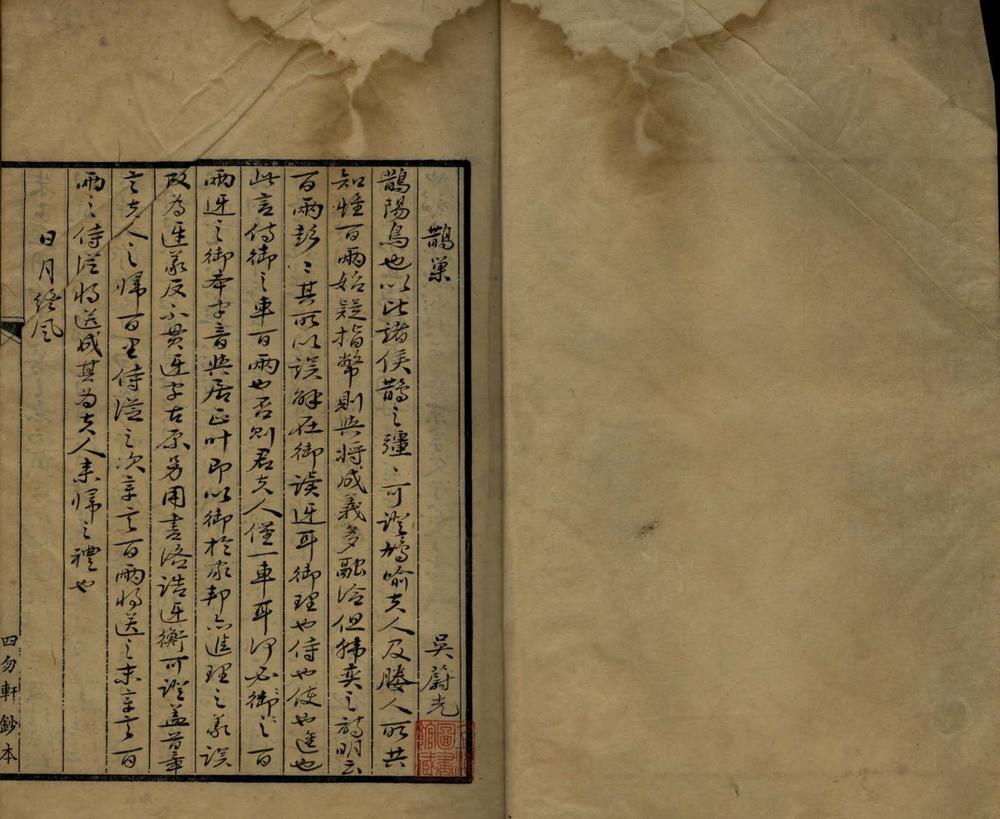 鵲巢 吳蔚光
鵲陽鳥也以比諸侯鵲之彊〻可證鳩喻夫人及媵人所共
知惟百兩始疑指幣則與將成義多融洽但韓奕之詩明云
百兩彭〻其所以誤解在御讀迓耳御理也侍也使也進也
此言侍御之車百兩也否則君夫人僅一車耳何必御之百
兩迓之御本字音與居正叶即以御於家邦亦進理之義誤
改為迓義反不貫迓字古原另用書洛誥迓衡可證蓋首章
言夫人之歸百里侍從之次章言百兩將送之末章言百
兩之侍從將送成其為夫人來歸之禮也
日月終風
四勿軒鈔本
圖書